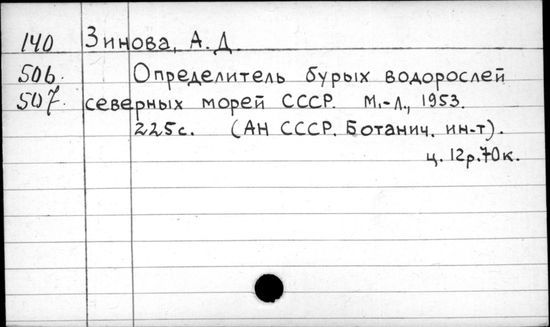 140 Зинова, А. Д.
506. Определитель бурых водорослей
507. северных морей СССР. М.-Л., 1953.
225с. (АН СССР. Ботанич. ин-т).
ц. 12р.70к.